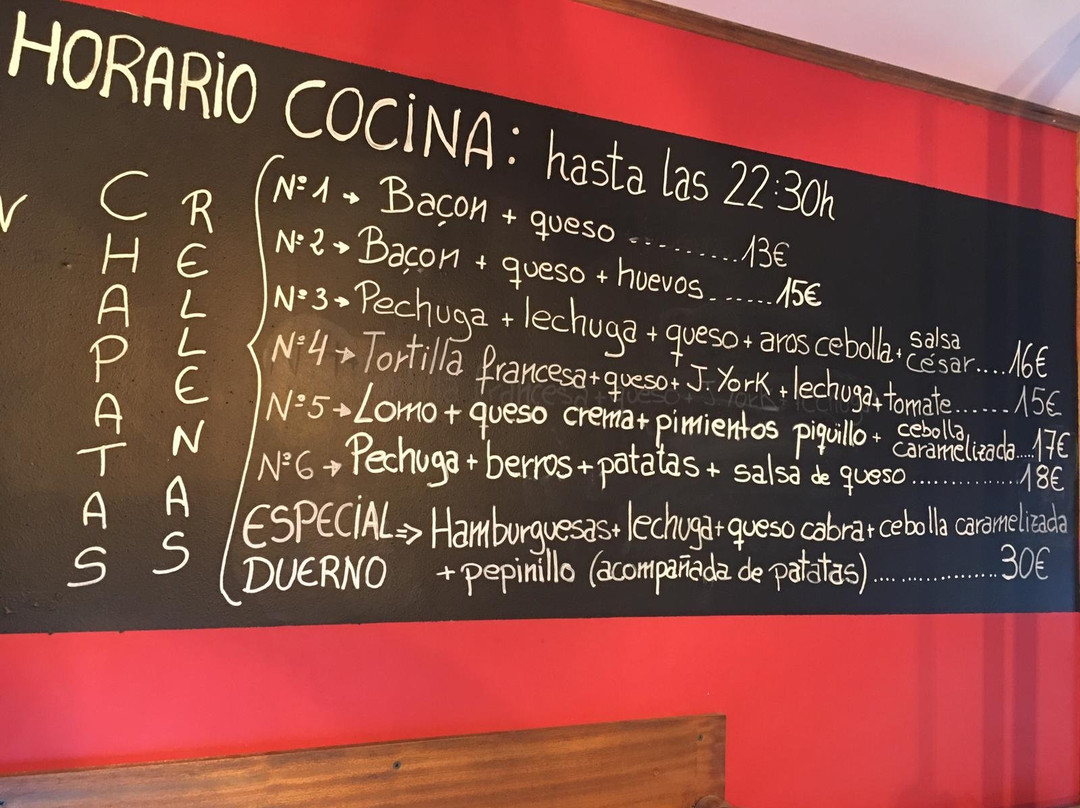 HORARIO COCINA: hasta las 22:30h
CHAPATAS
RELLENAS
Nº1 → Baçon + queso ........... 13€
Nº2 → Baçon + queso + huevos ...... 15€
Nº3 → Pechuga + lechuga + queso + aros cebolla + salsa césar.... 16€
Nº4 → Tortilla francesa + queso + J. York + lechuga + tomate...... 15€
Nº5 → Lomo + queso crema + pimientos piquillo + cebolla caramelizada.... 17€
Nº6 → Pechuga + berros + patatas + salsa de queso .............. 18€
ESPECIAL => Hamburguesas + lechuga + queso cabra + cebolla caramelizada
DUERNO + pepinillo (acompañada de patatas) .................... 30€